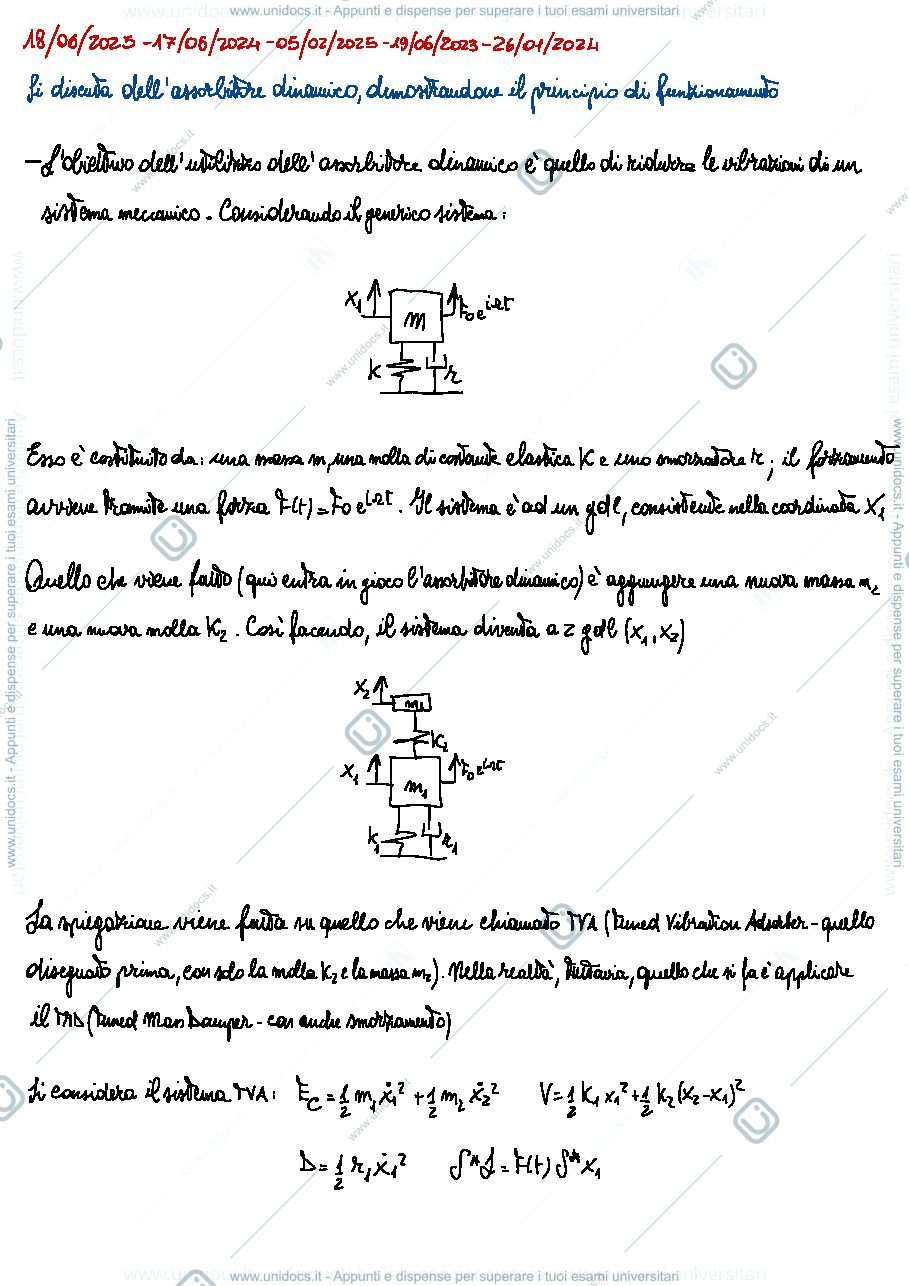 www.unidocs.it - Appunti e dispense per superare i tuoi esami universitari
18/06/2025 - 17/06/2024 - 05/02/2025 - 19/06/2023 - 26/01/2024
Si discuta dell'assorbitore dinamico, dimostrandone il principio di funzionamento
- L'obiettivo dell'utilizzo dell'assorbitore dinamico è quello di ridurre le vibrazioni di un
sistema meccanico. Considerando il generico sistema:
x₁ m F₀e^{iΩt}
k r
Esso è costituito da: una massa m, una molla di costante elastica K e uno smorzatore r; il forzamento
avviene tramite una forza F(t) = F₀ e^{iΩt}. Il sistema è ad un gdl, consistente nella coordinata x₁
Quello che viene fatto (qui entra in gioco l'assorbitore dinamico) è aggiungere una nuova massa m₂
e una nuova molla K₂. Così facendo, il sistema diventa a 2 gdl (x₁, x₂)
x₂ m₂
k₂
x₁ m₁ F₀e^{iΩt}
k₁ r₁
La spiegazione viene fatta su quello che viene chiamato TVA (Tuned Vibration Adsorber - quello
disegnato prima, con solo la molla K₂ e la massa m₂). Nella realtà, tuttavia, quello che si fa è applicare
il TMD (Tuned Mass Damper - con anche smorzamento)
Si considera il sistema TVA: E_C = 1/2 m₁ ẋ₁² + 1/2 m₂ ẋ₂² V = 1/2 K₁ x₁² + 1/2 K₂ (x₂ - x₁)²
D = 1/2 r₁ ẋ₁² δ*L = F(t) δ* x₁
www.unidocs.it - Appunti e dispense per superare i tuoi esami universitari